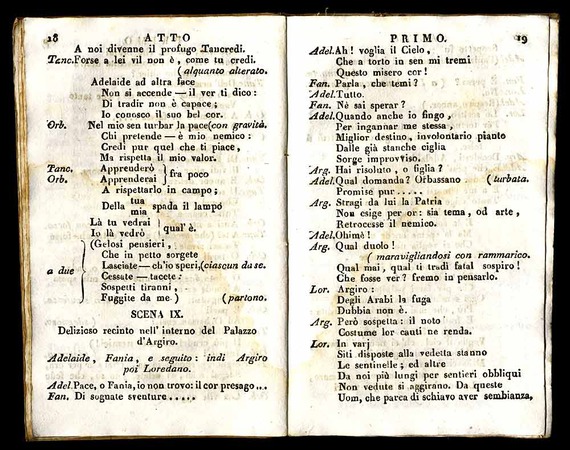 18
ATTO
A noi divenne il profugo Tancredi.
Tanc. Forse a lei vil non è, come tu credi.
(alquanto alterato.
Adelaide ad altra face
Non si accende — il ver ti dico:
Di tradir non è capace;
Io conosco il suo bel cor.
Orb. Nel mio sen turbar la pace (con gravità.
Chi pretende — è mio nemico:
Credi pur quel che ti piace,
Ma rispetta il mio valor.
Tanc. Apprenderò } fra poco
Orb. Apprenderai }
A rispettarlo in campo;
Della tua mia spada il lampo
Là tu vedrai } qual'è.
Io là vedrò }
a due
(Gelosi pensieri,
Che in petto sorgete
Lasciate — ch'io speri, (ciascun da se.
Cessate — tacete:
Sospetti tiranni,
Fuggite da me) (partono.
SCENA IX.
Delizioso recinto nell' interno del Palazzo
d'Argiro.
Adelaide, Fania, e seguito: indi Argiro
poi Loredano.
Adel. Pace, o Fania, io non trovo: il cor presago ...
Fan. Di sognate sventure .....
PRIMO.
19
Adel. Ah! voglia il Cielo,
Che a torto in sen mi tremi
Questo misero cor!
Fan. Parla, che temi?
Adel. Tutto.
Fan. Nè sai sperar?
Adel. Quando anche io fingo,
Per ingannar me stessa,
Miglior destino, involontario pianto
Dalle già stanche ciglia
Sorge improvviso.
Arg. Hai risoluto, o figlia?
Adel. Qual domanda? Orbassano (turbata.
Promise pur .....
Arg. Stragi da lui la Patria
Non esige per or: sia tema, od arte,
Retrocesse il nemico.
Adel. Ohimè!
Arg. Qual duolo!
( maravigliandosi con rammarico.
Qual mai, qual ti tradì fatal sospiro!
Che fosse ver? fremo in pensarlo.
Lor. Argiro:
Degli Arabi la fuga
Dubbia non è.
Arg. Però sospetta: il noto
Costume lor cauti ne renda.
Lor. In varj
Siti disposte alla vedetta stanno
Le sentinelle; ed altre
Da noi più lungi per sentieri obbliqui
Non vedute si aggirano. Da queste
Uom, che parea di schiavo aver sembianza,